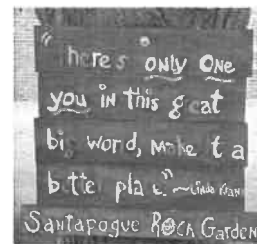 "There's only one
you in this great
big word, make it a
better place" ~Linda
Santapogue Rock Garden